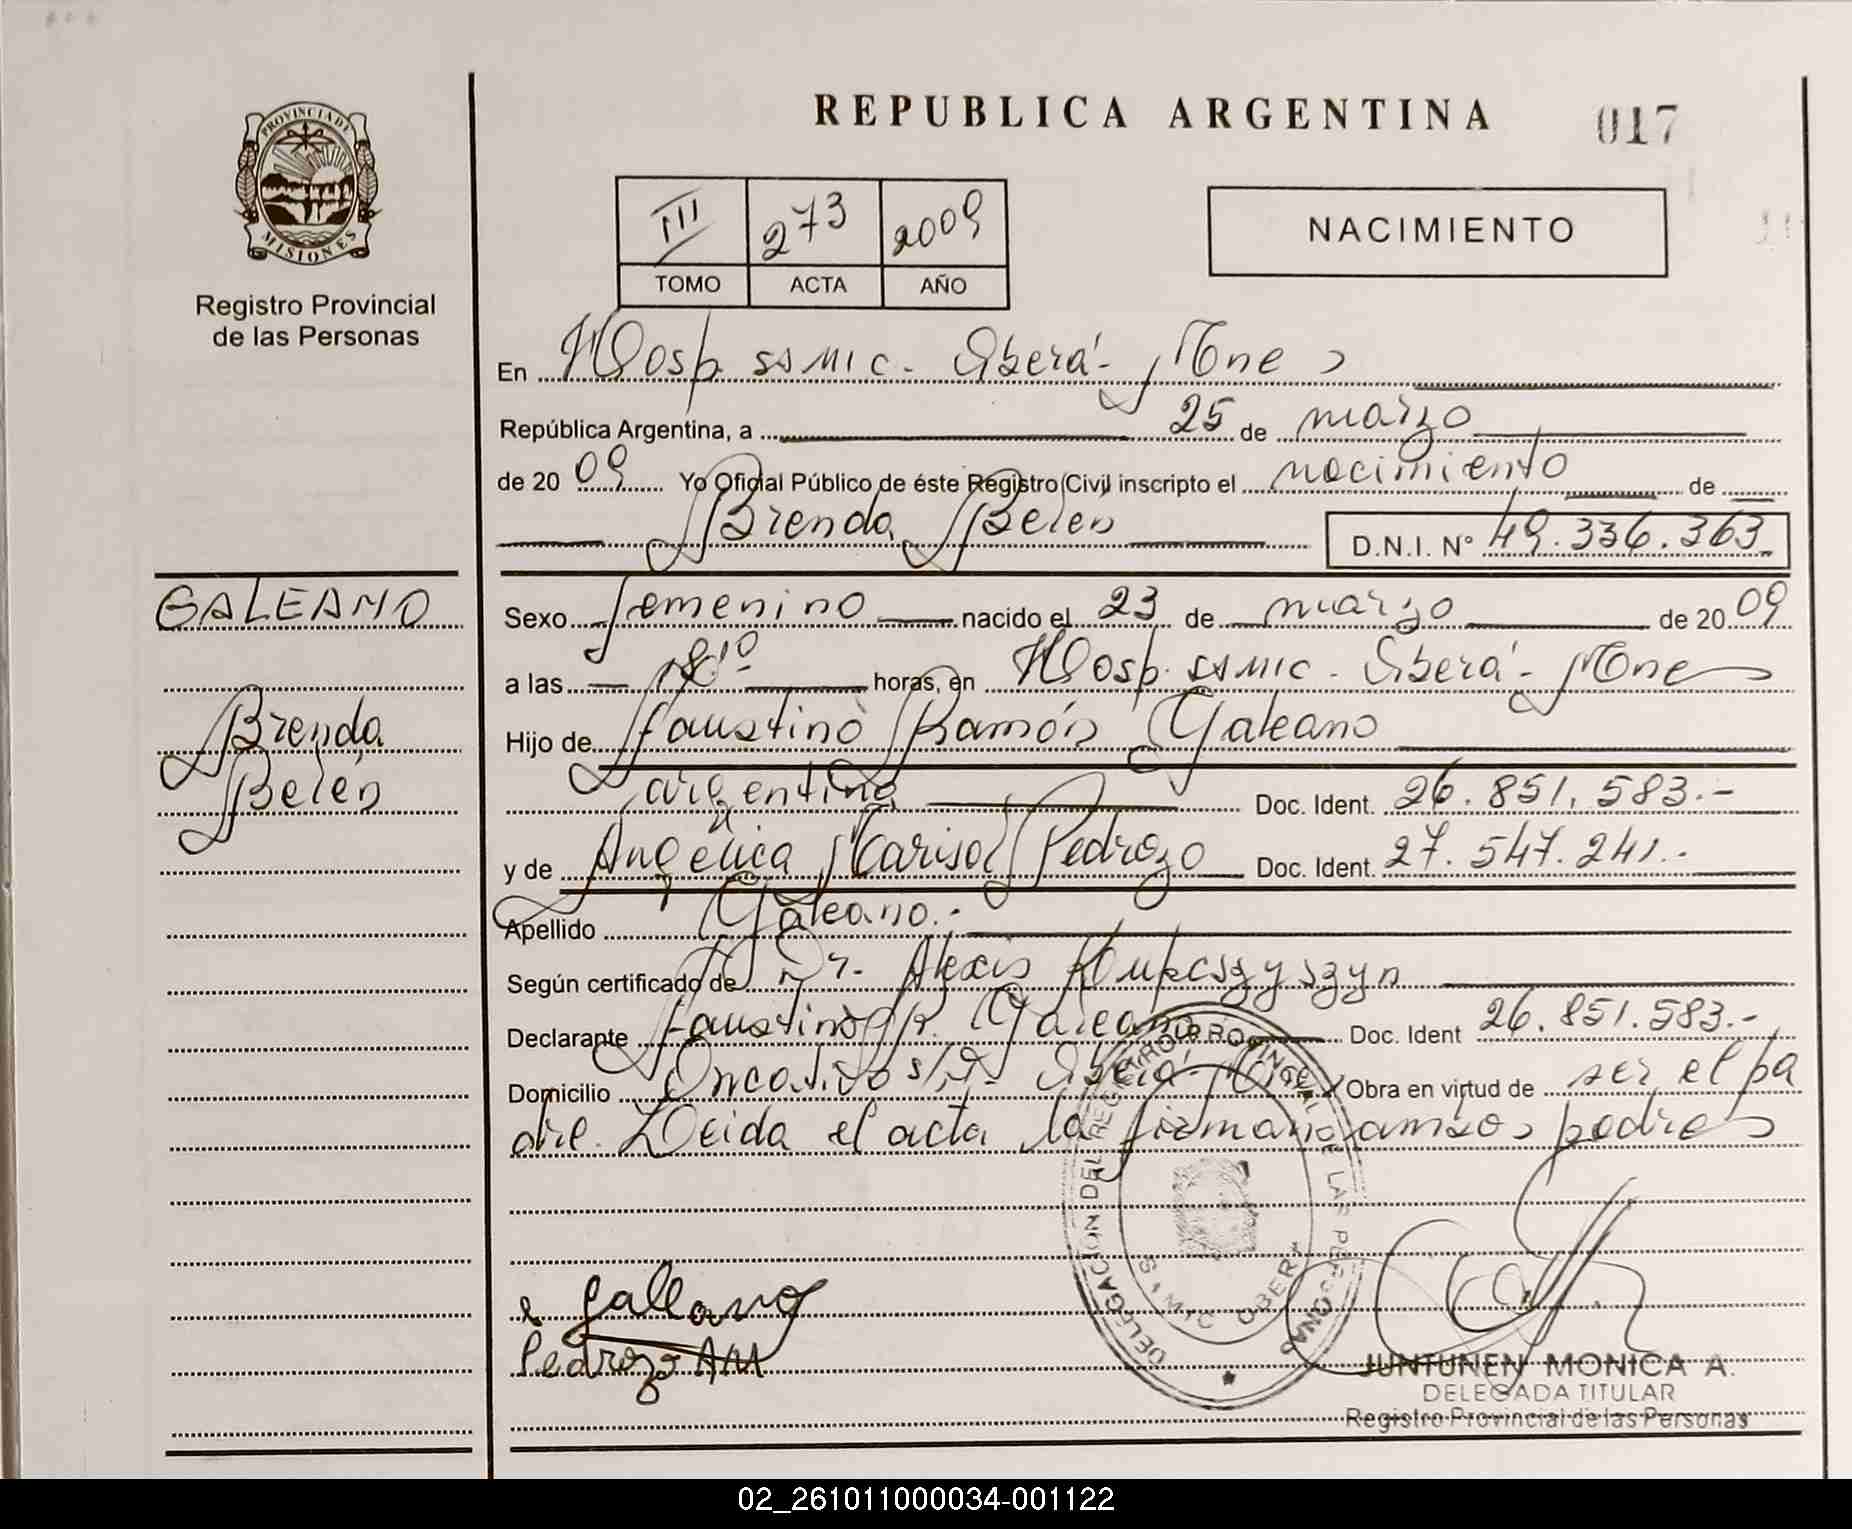 REPUBLICA ARGENTINA
017
PROVINCIA DE
MISIONES
Registro Provincial
de las Personas
III 273 2009
TOMO ACTA AÑO
NACIMIENTO
En Hosp. SAMIC - Oberá - Mnes
República Argentina, a 25 de marzo
de 2009 Yo Oficial Público de éste Registro Civil inscripto el nacimiento de
Brenda Belén D.N.I. N° 49.336.363
GALEANO
Brenda
Belén
Sexo femenino nacido el 23 de marzo de 2009
a las 18:10 horas, en Hosp. SAMIC - Oberá - Mnes
Hijo de Faustino Ramón Galeano
argentino Doc. Ident. 26.851.583.-
y de Angélica Marisol Pedrozo Doc. Ident. 27.547.241.-
Apellido Galeano.-
Según certificado de Dr. Alexis
Declarante Faustino R. Galeano Doc. Ident 26.851.583.-
Domicilio Oncativo s/n - Oberá - Mnes Obra en virtud de ser el pa
dre. Leida el acta, la firman ambos padres
DELEGACION DEL REGISTRO PROVINCIAL DE LAS PERSONAS
SAMIC OBERA
Galeano
Pedrozo AM
JUNTUNEN MONICA A.
DELEGADA TITULAR
Registro Provincial de las Personas
02_261011000034-001122